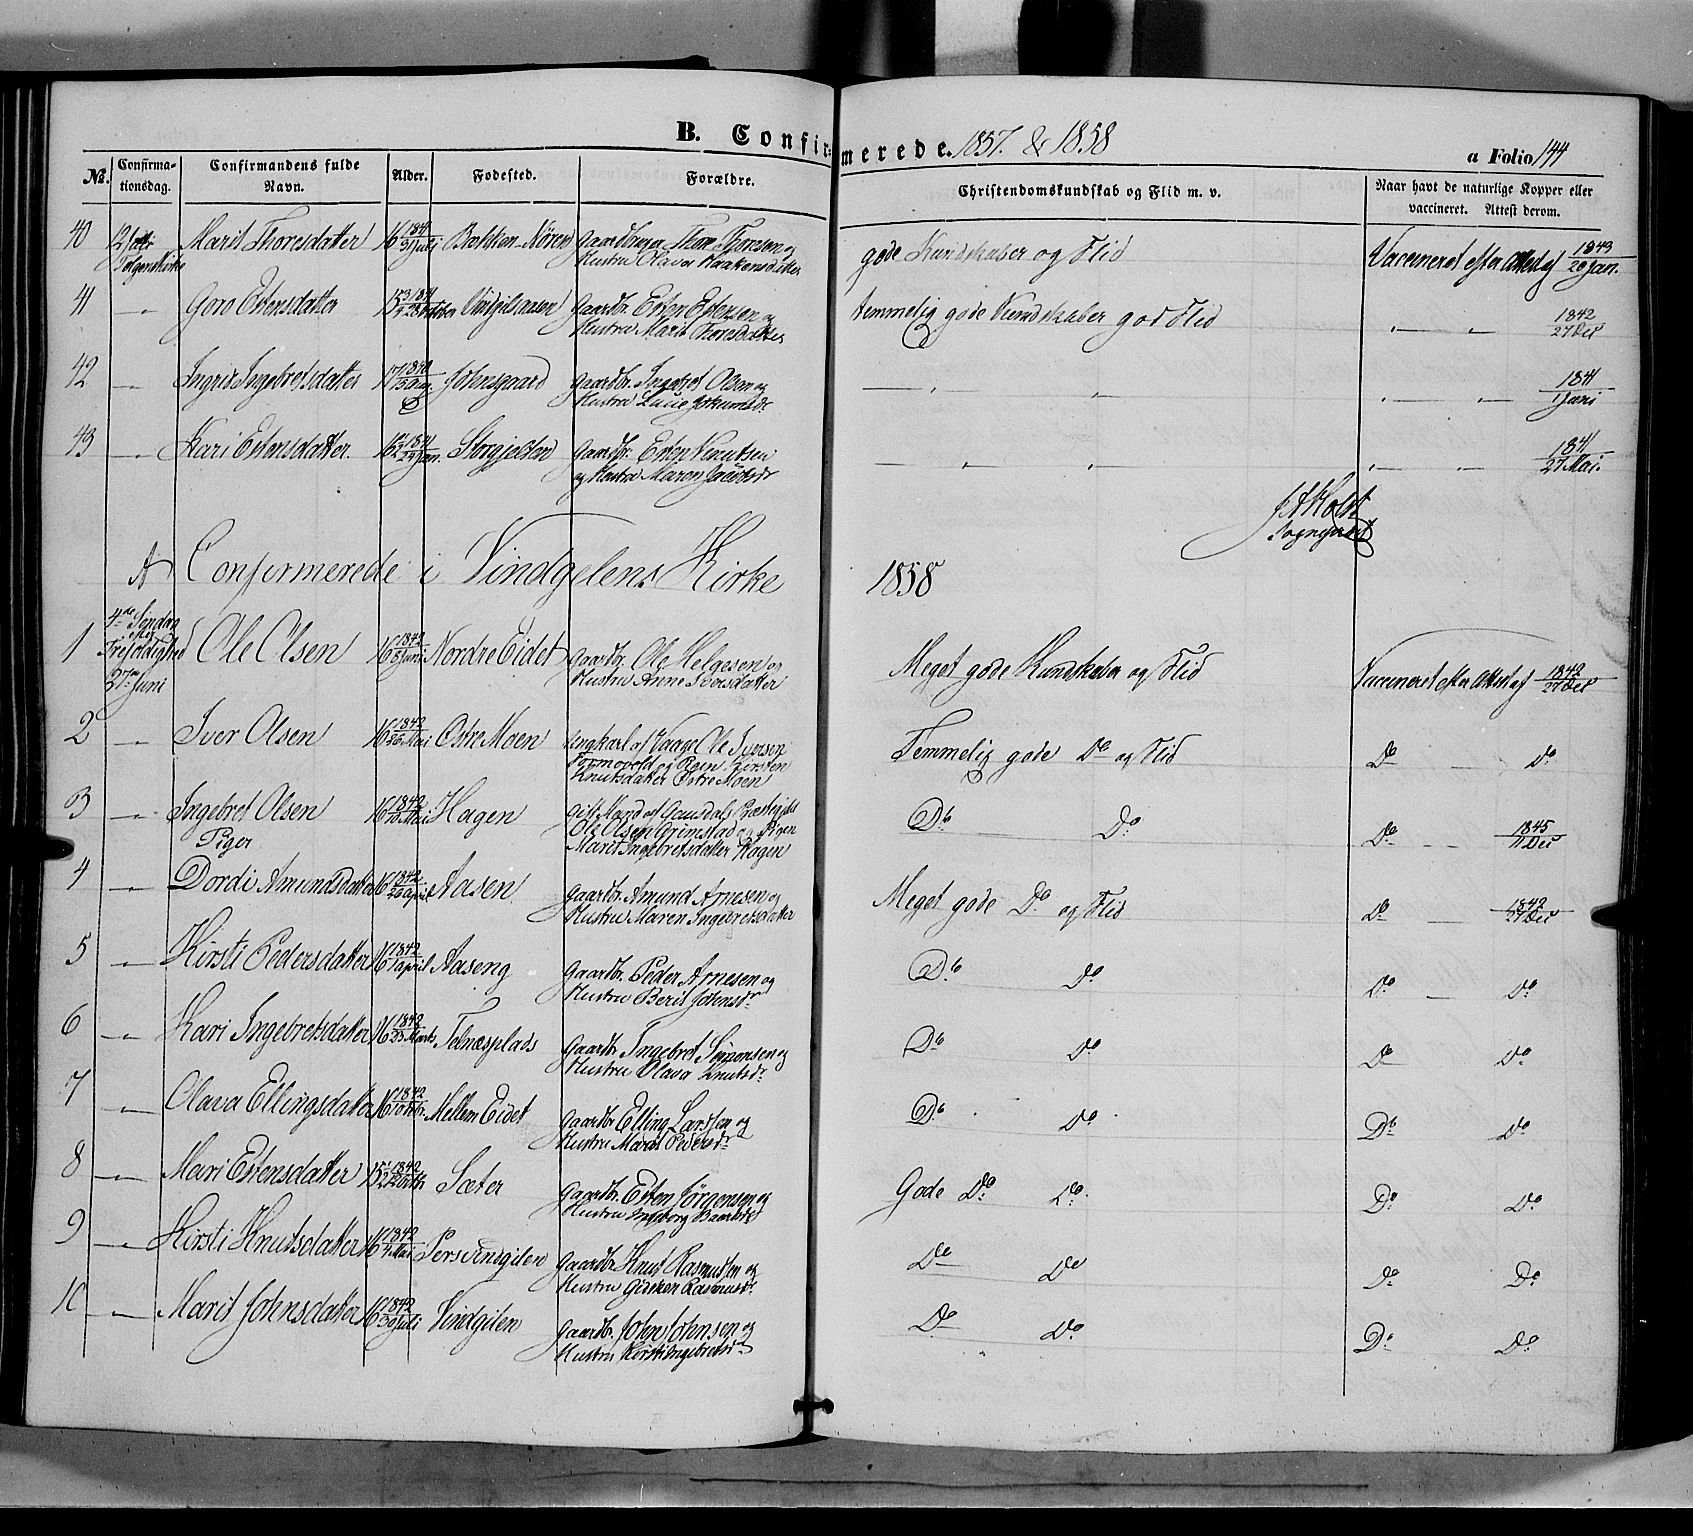 B. Confirmerede. 1857. & 1858
a Folio 144
No. Confirmationsdag. Confirmandens fulde Navn. Alder. Fødested. Forældre. Christendomskundskab og Flid m. v. Naar havt de naturlige Kopper eller vaccineret. Attest derom.
40 Marit Thoresdatter 16 1841 31 Juli Bakken Nören Gaardbruger Thore Thoresen og
Tolgens Kirke Hustru Olava Haakensdatter gode Kundskaber og Flid Vaccineret efter Attest af 1843 20 Jan.
41 — Goro Estensdatter Gaardbr. Esten Estensen og
Hustru Marit Thoresdatter temmelig gode Kundskaber god Flid 1842 27 Dec
42 — Ingrid Ingebretsdatter 17 1840 Johnsgaard Gaardbr. Ingebret Olsen og
Hustru 1841 1 Juni
43 — Kari Estensdatter 16 1841 Jan. Gaardbr. Esten Knutsen
og Hustru Maren Jacobsdr 1841 27 Mai.
Holst
Sognepræst
A Confirmerede i Vindgelens Kirke 1858
4de Söndag
efter
Trefoldighed
27de Juni
1 Ole Olsen 16 1842 8 Juni Nordre Eidet Gaardbr. Ole Helgesen og
Hustru Anne Iversdatter Meget gode Kundskaber og Flid Vaccineret efter Attest af 1842 27 Dec
2 — Iver Olsen 16 1842 26 Mai Östre Moen Ungkarl af Vaage Ole Iversen
og Kirsten
Knutsdatter Östre Moen Temmelig gode Do og Flid Do Do
3 — Ingebret Olsen 16 1842 10 Mai Hagen Gift Mand af Gausdals Præstegjeld
Ole Olsen Grimstad og Pigen
Marit Ingebretsdatter Hagen Do Do Do 1845 11 Dec
Piger
4 — Dordi Amundsdatter 16 1842 26 April Aasen Gaardbr. Amund Arnesen og
Hustru Maren Ingebretsdatter Meget gode Do og Flid Do — 1842 27 Dec
5 — Kirsti Pedersdatter 16 1842 1 April Aaseng Gaardbr. Peder Arnesen og
Hustru Berit Johnsdr Do Do Do — Do
6 — Kari Ingebretsdatter 16 1842 23 Marts Tolnæsplads Gaardbr Ingebret Simonsen og
Hustru Olava Knutsdr Do Do Do Do
7 — Olava Ellingsdatter 16 1842 Mellem Eidet Gaardbr Elling Larssen og
Hustru Marit Pedersdr Do Do Do Do
8 — Mari Estensdatter 15 1842 Sæter Gaardbr. Esten Jörgensen og
Hustru Ingeborg Baarsdr Gode Do Do Do Do
9 — Kirsti Knutsdatter 16 1842 Mai Persvindgilen Gaardbr Knut Rasmussen og
Hustru Gidsken Rasmusdr Do Do Do Do
10 — Marit Johnsdatter 16 1842 30 Juli Vindgilen Gaardbr. John Johnsen og
Hustru Kirsti Ingebretsdr Do Do Do Do